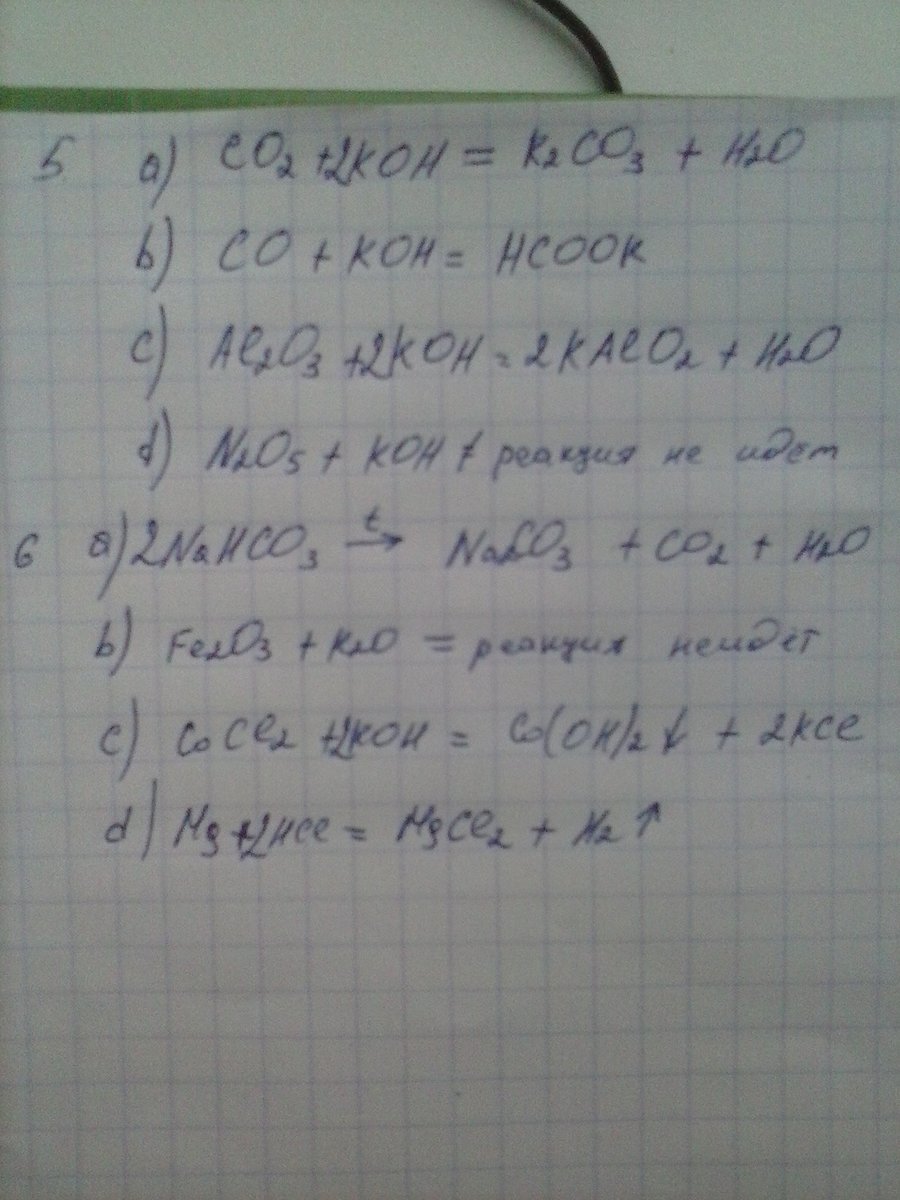 5 a) CO2 + 2KOH = K2CO3 + H2O
b) CO + KOH = HCOOK
c) Al2O3 + 2KOH = 2KAlO2 + H2O
d) N2O5 + KOH ≠ реакция не идет
6 a) 2NaHCO3 t→ Na2CO3 + CO2 + H2O
b) Fe2O3 + K2O = реакция неидёт
c) CoCl2 + 2KOH = Co(OH)2↓ + 2KCl
d) Mg + 2HCl = MgCl2 + H2↑